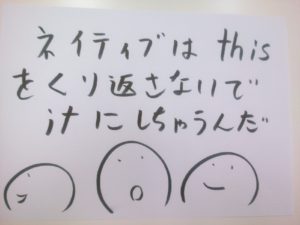 ネイティブは this
をくり返さないで
itにしちゃうんだ